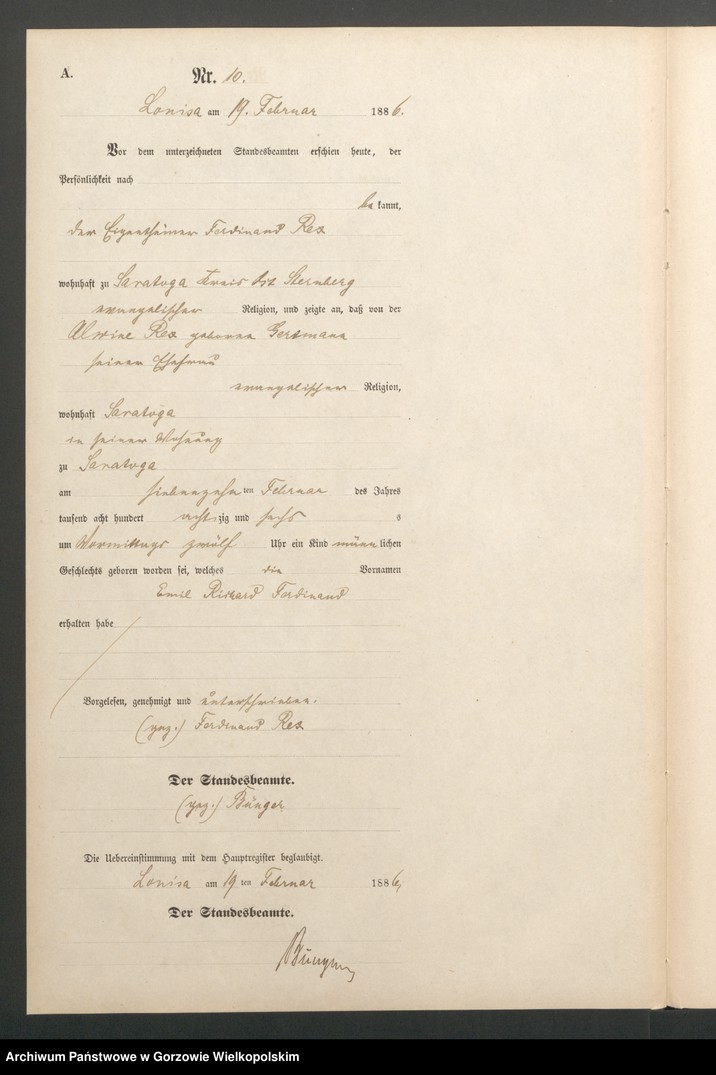 A.
Nr. 10.
Louisa am 19. Februar 1886.
Vor dem unterzeichneten Standesbeamten erschien heute, der
Persönlichkeit nach
bekannt,
der Eigenthümer Ferdinand Rex
wohnhaft zu Saratoga Kreis Ost Sternberg
evangelischer Religion, und zeigte an, daß von der
Alwine Rex geborene Gersmann
seiner Ehefrau
evangelischer Religion,
wohnhaft Saratoga
in seiner Wohnung
zu Saratoga
am siebenzehn ten Februar des Jahres
tausend acht hundert acht zig und sechs s
um Vormittags zwölf Uhr ein Kind männlichen
Geschlechts geboren worden sei, welches die Vornamen
Emil Richard Ferdinand
erhalten habe
Vorgelesen, genehmigt und unterschrieben.
(gez.) Ferdinand Rex
Der Standesbeamte.
(gez.) Bünger
Die Uebereinstimmung mit dem Hauptregister beglaubigt.
Louisa am 19 ten Februar 1886,
Der Standesbeamte.
Bünger
Archiwum Państwowe w Gorzowie Wielkopolskim